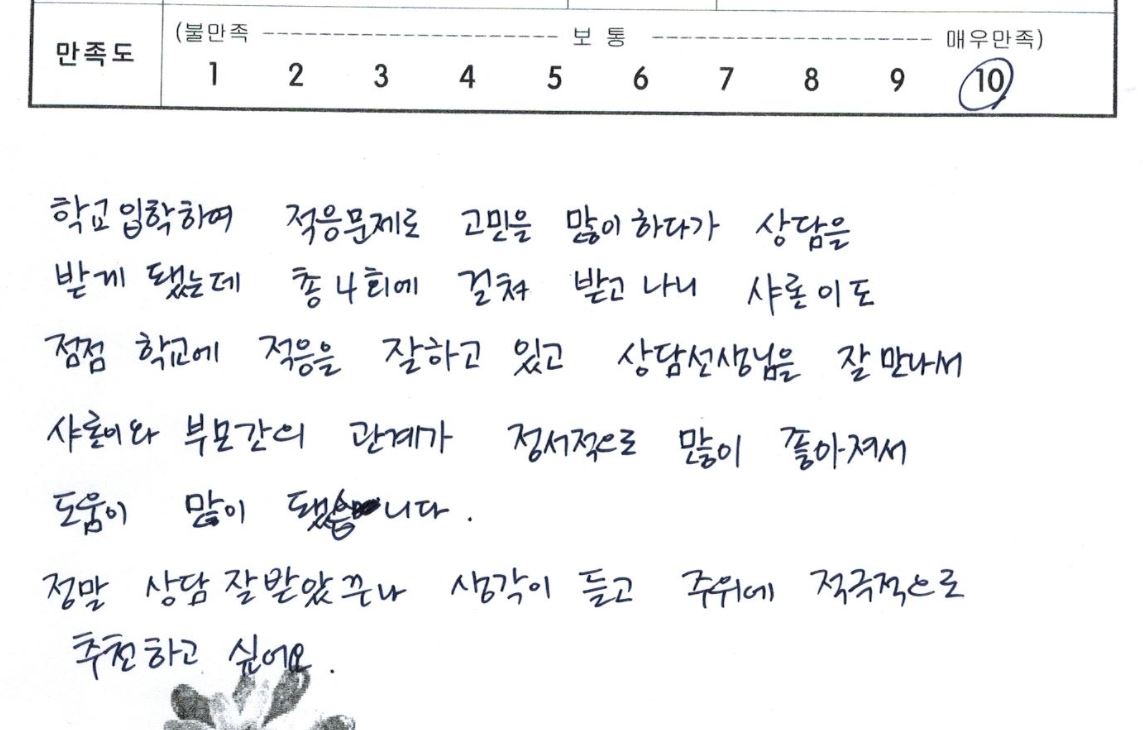 (불만족 ---------------------- 보 통 --------------------- 매우만족)
만족도 1 2 3 4 5 6 7 8 9 10
학교입학하여 적응문제로 고민을 많이하다가 상담을
받게 됐는데 총 4회에 걸쳐 받고 나니 샤론이도
점점 학교에 적응을 잘하고 있고 상담선생님을 잘 만나서
샤론이와 부모간의 관계가 정서적으로 많이 좋아져서
도움이 많이 됐습니다.
정말 상담 잘받았꾸나 생각이 들고 주위에 적극적으로
추천하고 싶어요.